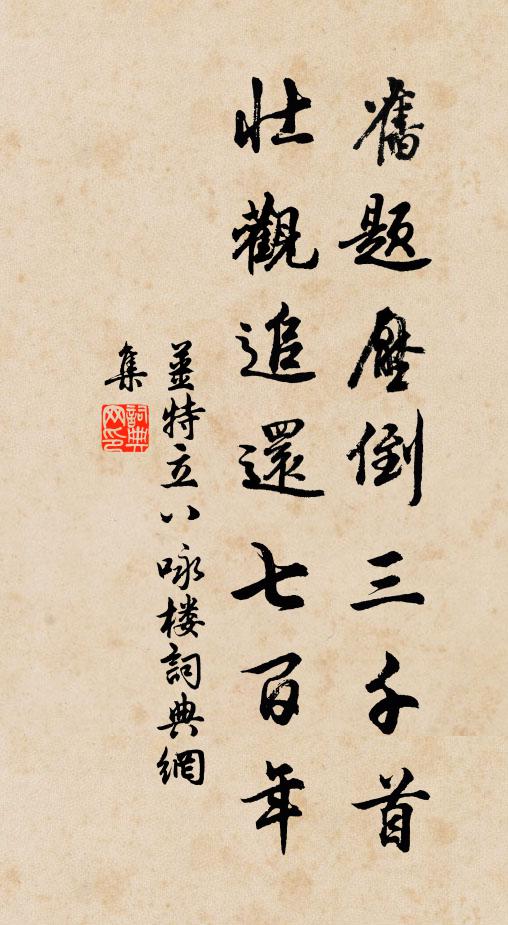 舊題壓倒三千首
壯觀追還七百年
姜特立八咏樓詞典網
集
詞典網印